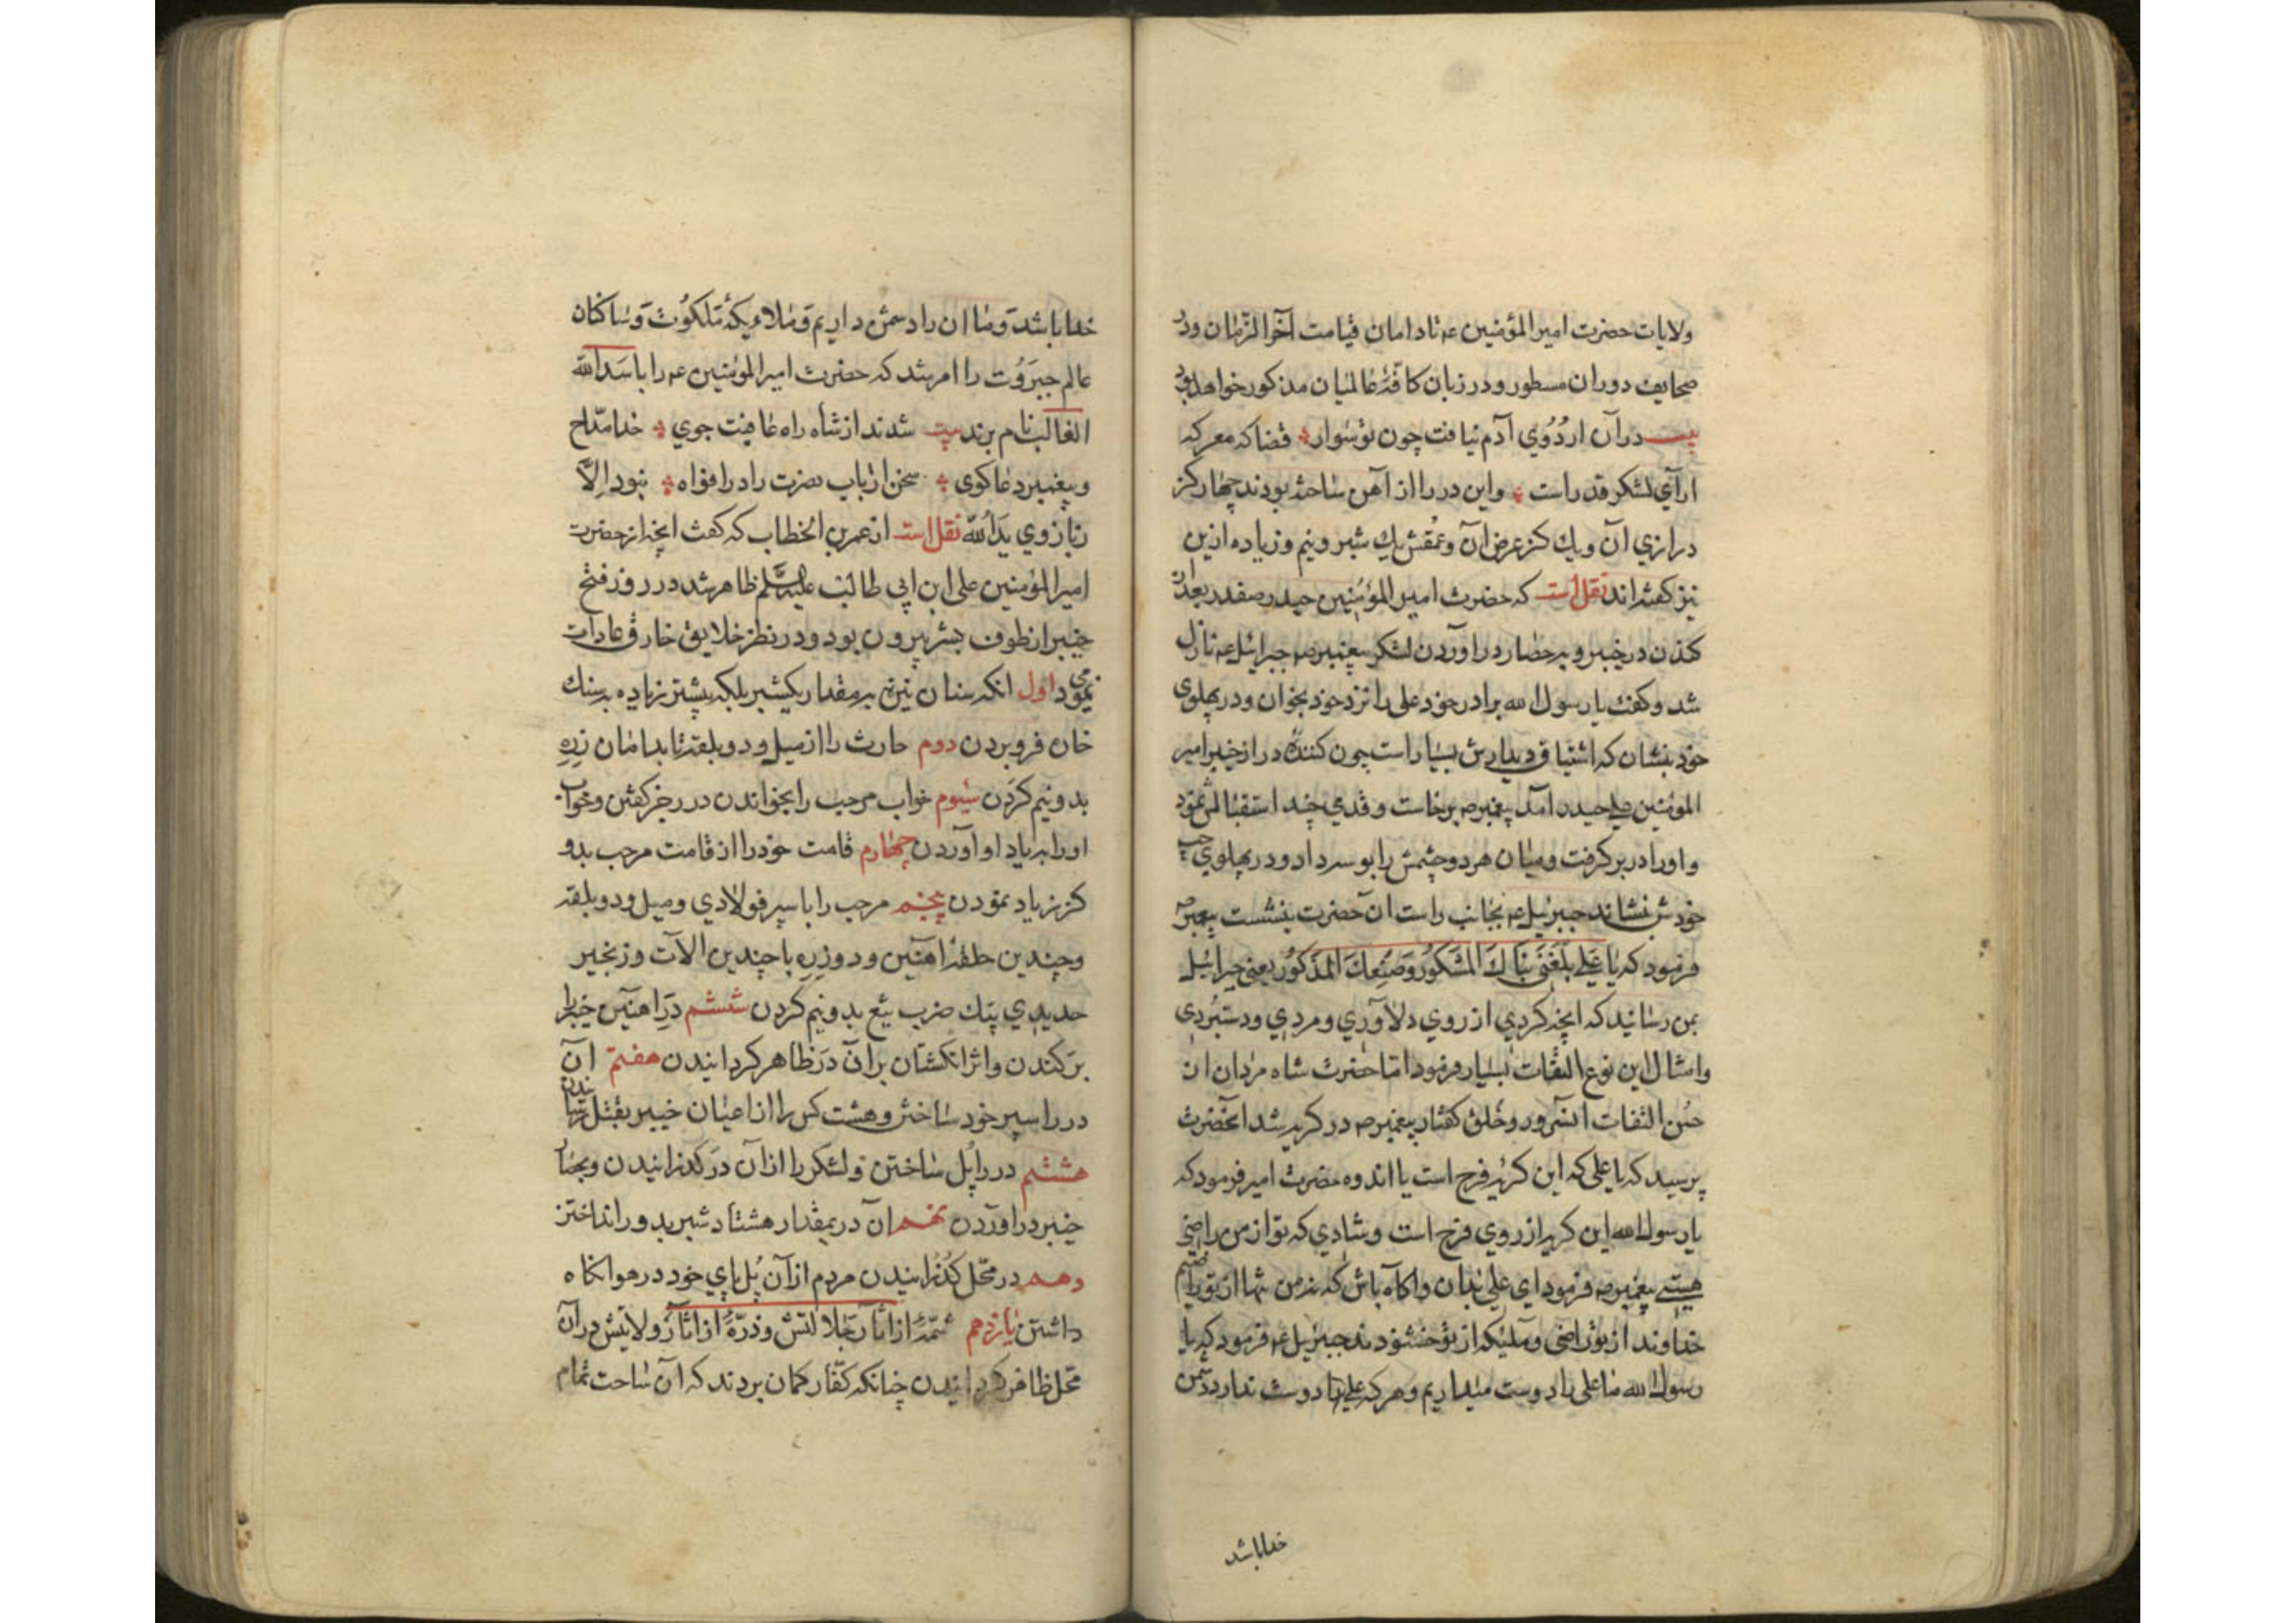 ولایات حضرت امیر المؤمنین عم تا دامان قیامت آخر الزمان ودر
صحایف دوران مسطور و در زبان کافهٔ عالمیان مذکور خواهد بود
بیت در آن اردوی آدم نیافت چون تو سوار قضا که معرکه
آرای لشکر قدر است واین در را از آهن ساخته بودند چهار کز
درازی آن ویك کز عرض آن وعمقش یك شبر ونیم وزیاده ازین
نیز کفته اند نقل است که حضرت امیر المؤمنین حیدر صفدر بعد از
کندن در خیبر و بر حصار در آوردن لشکر پیغمبر صم جبرائیل عم نازل
شد وکفت یا رسول الله برادر خود علی را نزد خود بخوان ودر پهلوی
خود بنشان که اشتیاق دیدارش بسیار است چون کنندهٔ در از خیبر امیر
المومنین علی حیدر آمد پیغمبر صم برخاست وقدمی چند استقبالش نمود
واورا در بر کرفت ومیان هر دو چشمش را بوسه داد ودر پهلوی چپ
خودش نشاند جبرئیل عم بجانب راست آن حضرت بنشست پیغمبر صم
فرمود که یا علی بلغنی نباك المشکور وصنعك المذکور یعنی جبرائیل
بمن رسانید که آنچه کردی از روی دلاوری ومردی ودستبردی
وامثال این نوع التفات بسیار فرمود اما حضرت شاه مردان از
حسن التفات آن سرور وخلق کفتار پیغمبر صم در کریه شد آنحضرت
پرسید که یا علی که این کریه فرح است یا اندوه حضرت امیر فرمود که
یا رسول الله این کریه از روی فرح است وشادی که تو از من راضی
هستی پیغمبر صم فرمود ای علی بدان واکاه باش که نه من تنها از تو راضیم
خداوند از تو راضی وملیکه از تو خشنودند جبرئیل عم فرمود که یا
رسول الله ما علی را دوست میداریم وهر که علی را دوست ندارد دشمن
خدا باشد
خدا باشد وما آن را دشمن داریم وملاءیکهٔ ملکوت وساکنان
عالم جبروت را امر شد که حضرت امیر المومنین عم را باسد الله
الغالب نام برند بیت شدند از شاه راه عافیت جوی خدا مداح
وپیغمبر دعاکوی سخن ارباب نصرت را در افواه نبود الا
زبازوی ید الله نقل است از عمر بن الخطاب که کفت آنچه از حضرت
امیر المؤمنین علی ابن ابی طالب علیه السلم ظاهر شد در روز فتح
خیبر از طوف بشر بیرون بود ودر نظر خلایق خارق عادات
می نمود اول آنکه سنان نیزه بمقدار یکشبر بلکه بیشتر زیاده بر سنك
خاره فرو بردن دوم حارث را از میل و دو بلغه تا بدامان زره
بدو نیم کردن سیوم خواب مرحب را بخواندن در رجز کفتن وخواب
اورا بر یاد او آوردن چهارم قامت خود را از قامت مرحب بدو
کز زیاد نمودن پنجم مرحب را با سپر فولادی ومیل ودو بلغه
وچندین حلقهٔ آهنین ودو زره با چندین آلات وزنجیر
حدیدی بیك ضرب تیغ بدو نیم کردن ششم در آهنین خیبر را
بر کندن واثر انکشتان بر آن در ظاهر کردانیدن هفتم آن
در را سپر خود ساختن وهشت کس را از اعیان خیبر بقتل رسانیدن
هشتم در را پل ساختن ولشکر را از آن در کذرانیدن وبحصار
خیبر در آوردن نهم آن در بمقدار هشتاد شبر بدور انداختن
دهم در محل کذرانیدن مردم از آن پل پای خود در هوا نکاه
داشتن یازدهم شمهٔ از آثار جلالتش وذرهٔ از آثار ولایتش در آن
محل ظاهر کردانیدن چنانکه کفار کمان بردند که آن ساحت تمام